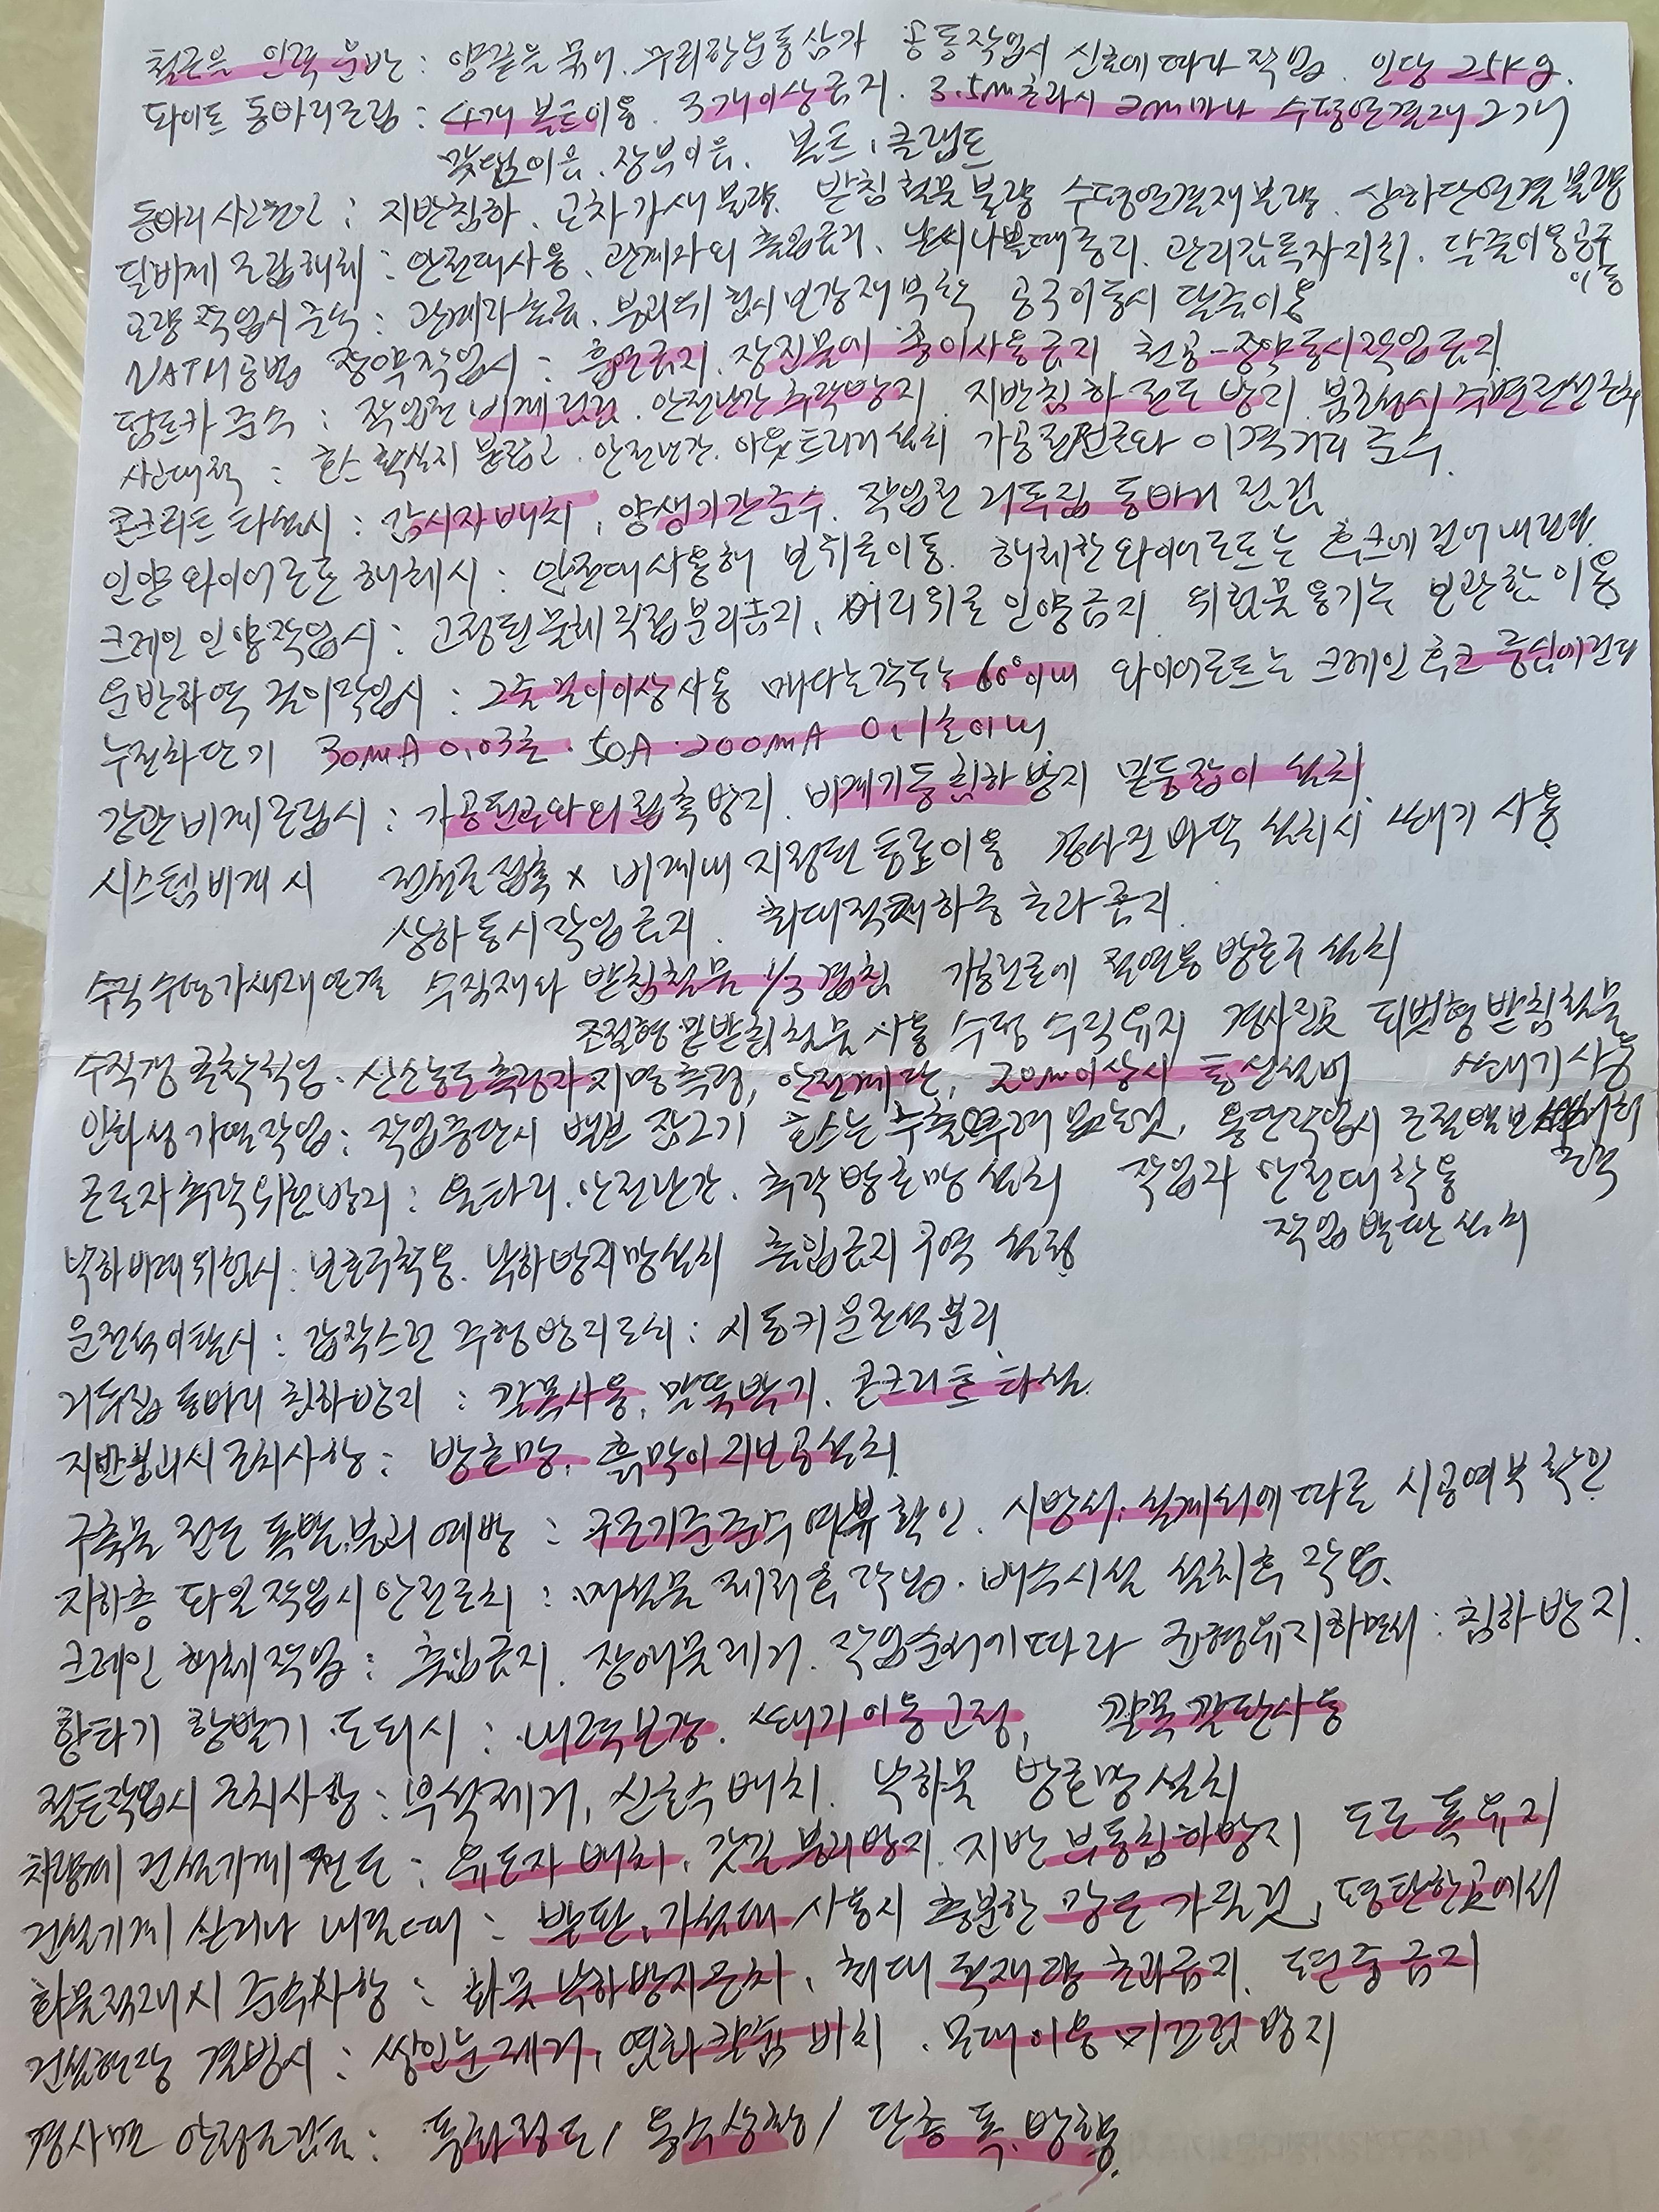 철근을 인력 운반 : 양끝을 묶어. 무리한 운동삼가 공동작업시 신호에 따라 작업. 인당 25kg.
파이프 동바리조립 : 4개 볼트이용. 3개이상금지. 3.5m초과시 2m마다 수평연결재 2개
맞댐이음. 장부이음. 볼트, 클램프
동바리 사고원인 : 지반침하. 교차가새 불량. 받침철물불량 수평연결재불량. 상하단연결불량
달비계 조립해체 : 안전대사용. 관계자외 출입금지. 날씨나쁠때중지. 관리감독자지휘. 달줄이용공구
이동
교량 작업시 준수 : 관계자출금. 붕괴위험시 보강재부착 공구이동시 달줄이용
NATM공법 장약작업시 : 흡연금지. 장진물에 종이사용금지 천공-장약동시작업금지
펌프카 준수 : 작업전 비계점검. 안전난간 추락방지. 지반침하 전도 방지. 붐조정시 주변전선
사고대책 : 안전난간. 아웃트리거설치 가공전선로와 이격거리 준수.
콘크리트 타설시 : 감시자배치, 양생기간준수. 작업전 거푸집 동바리 점검
인양 와이어로프 해체시 : 안전대사용해 보위로이동. 해체한 와이어로프는 후크에 걸어 내린다.
크레인 인양작업시 : 고정된물체 직접분리금지, 머리위로 인양금지. 위험물용기는 보관함 이용
운반하역 걸이작업시 : 2줄걸이이상사용 매다는각도는 60°이내 와이어로프는 크레인 후크 중심에건다
누전차단기 30mA 0.03초. 50A. 200mA 0.1초이내
강관비계조립시 : 가공전로와의접촉방지. 비계기둥침하방지 밑둥잡이 설치
시스템비계 시 전선로접촉 x 비계내 지정된 통로이용 경사진 바닥 설치시 쐐기 사용
상하 동시작업금지. 최대적재하중 초과금지.
수직수평가새재연결 수직재와 받침철물 1/3겹침 가공전로에 절연용 방호구설치
조절형 밑받침철물 사용 수평 수직유지 경사진곳 피벗형받침철물
수직갱 굴착작업. 산소농도측정자 지명측정, 안전계단, 20m이상시 통신설비 쐐기사용
인화성가열작업 : 작업중단시 밸브 잠그기 호스는 누출우려 없는것, 용단작업시 조절밸브
근로자추락위험방지 : 울타리. 안전난간. 추락방호망설치 작업자 안전대착용
작업발판설치
낙하비래위험시. 보호구착용. 낙하방지망설치 출입금지구역 설정
운전석이탈시 : 갑작스런 주행방지조치 : 시동키운전석분리
거푸집 동바리 침하방지 : 깔목사용, 말뚝박기. 콘크리트타설.
지반붕괴시 조치사항 : 방호망, 흙막이지보공설치
구축물 전도 폭발.붕괴 예방 : 구조기준준수 여부확인. 시방서, 설계서에 따른 시공여부 확인
지하층 파일작업시안전조치 : 매설물제거후 작업. 배수시설 설치후 작업.
크레인 해체작업 : 출입금지. 장애물제거. 작업순서에따라 균형유지하면서 : 침하방지.
항타기 항발기 도괴시 : 내력보강. 쐐기이용고정, 깔목깔판사용
절토작업시 조치사항 : 부석제거, 신호수배치. 낙하물 방호망설치
차량계 건설기계 전도 : 유도자 배치, 갓길붕괴방지. 지반 부동침하방지 도로폭유지
건설기계 싣거나 내릴때 : 발판, 가설대 사용시 충분한 강도가질것, 평탄한곳에서
화물적재시 준수사항 : 화물낙하방지조치, 최대적재량초과금지. 편중금지
건설현장 결빙시 : 쌓인눈제거, 염화칼슘 비치. 모래이용 미끄럼방지
경사면 안정조건검토 : 풍화정도/ 용수상황/ 단층 폭. 방향.